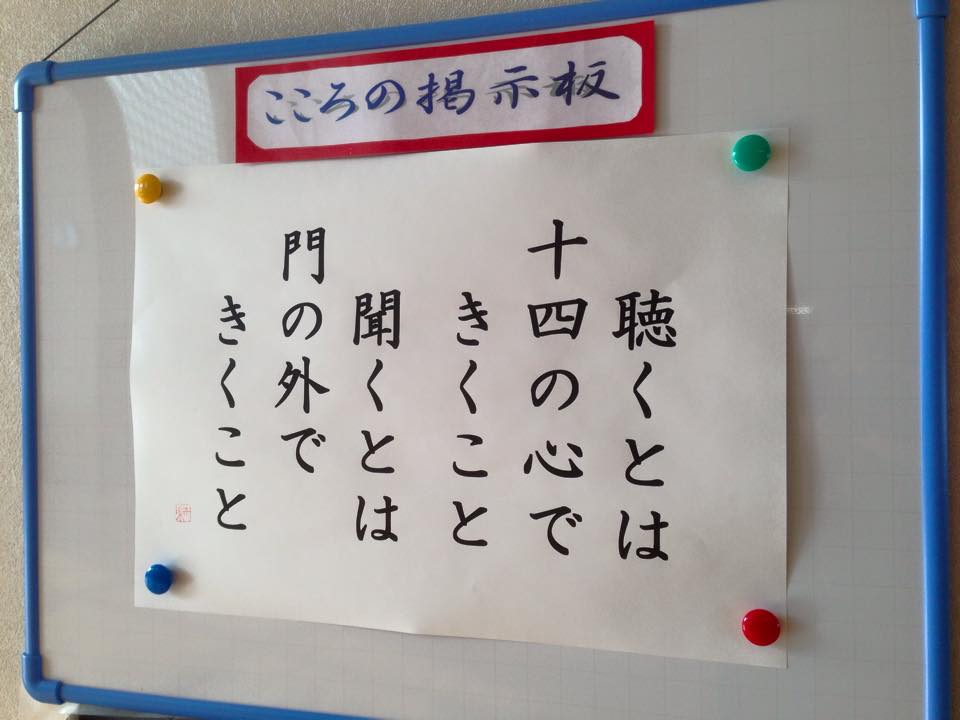 こころの掲示板
聴くとは
十四の心で
きくこと
聞くとは
門の外で
きくこと